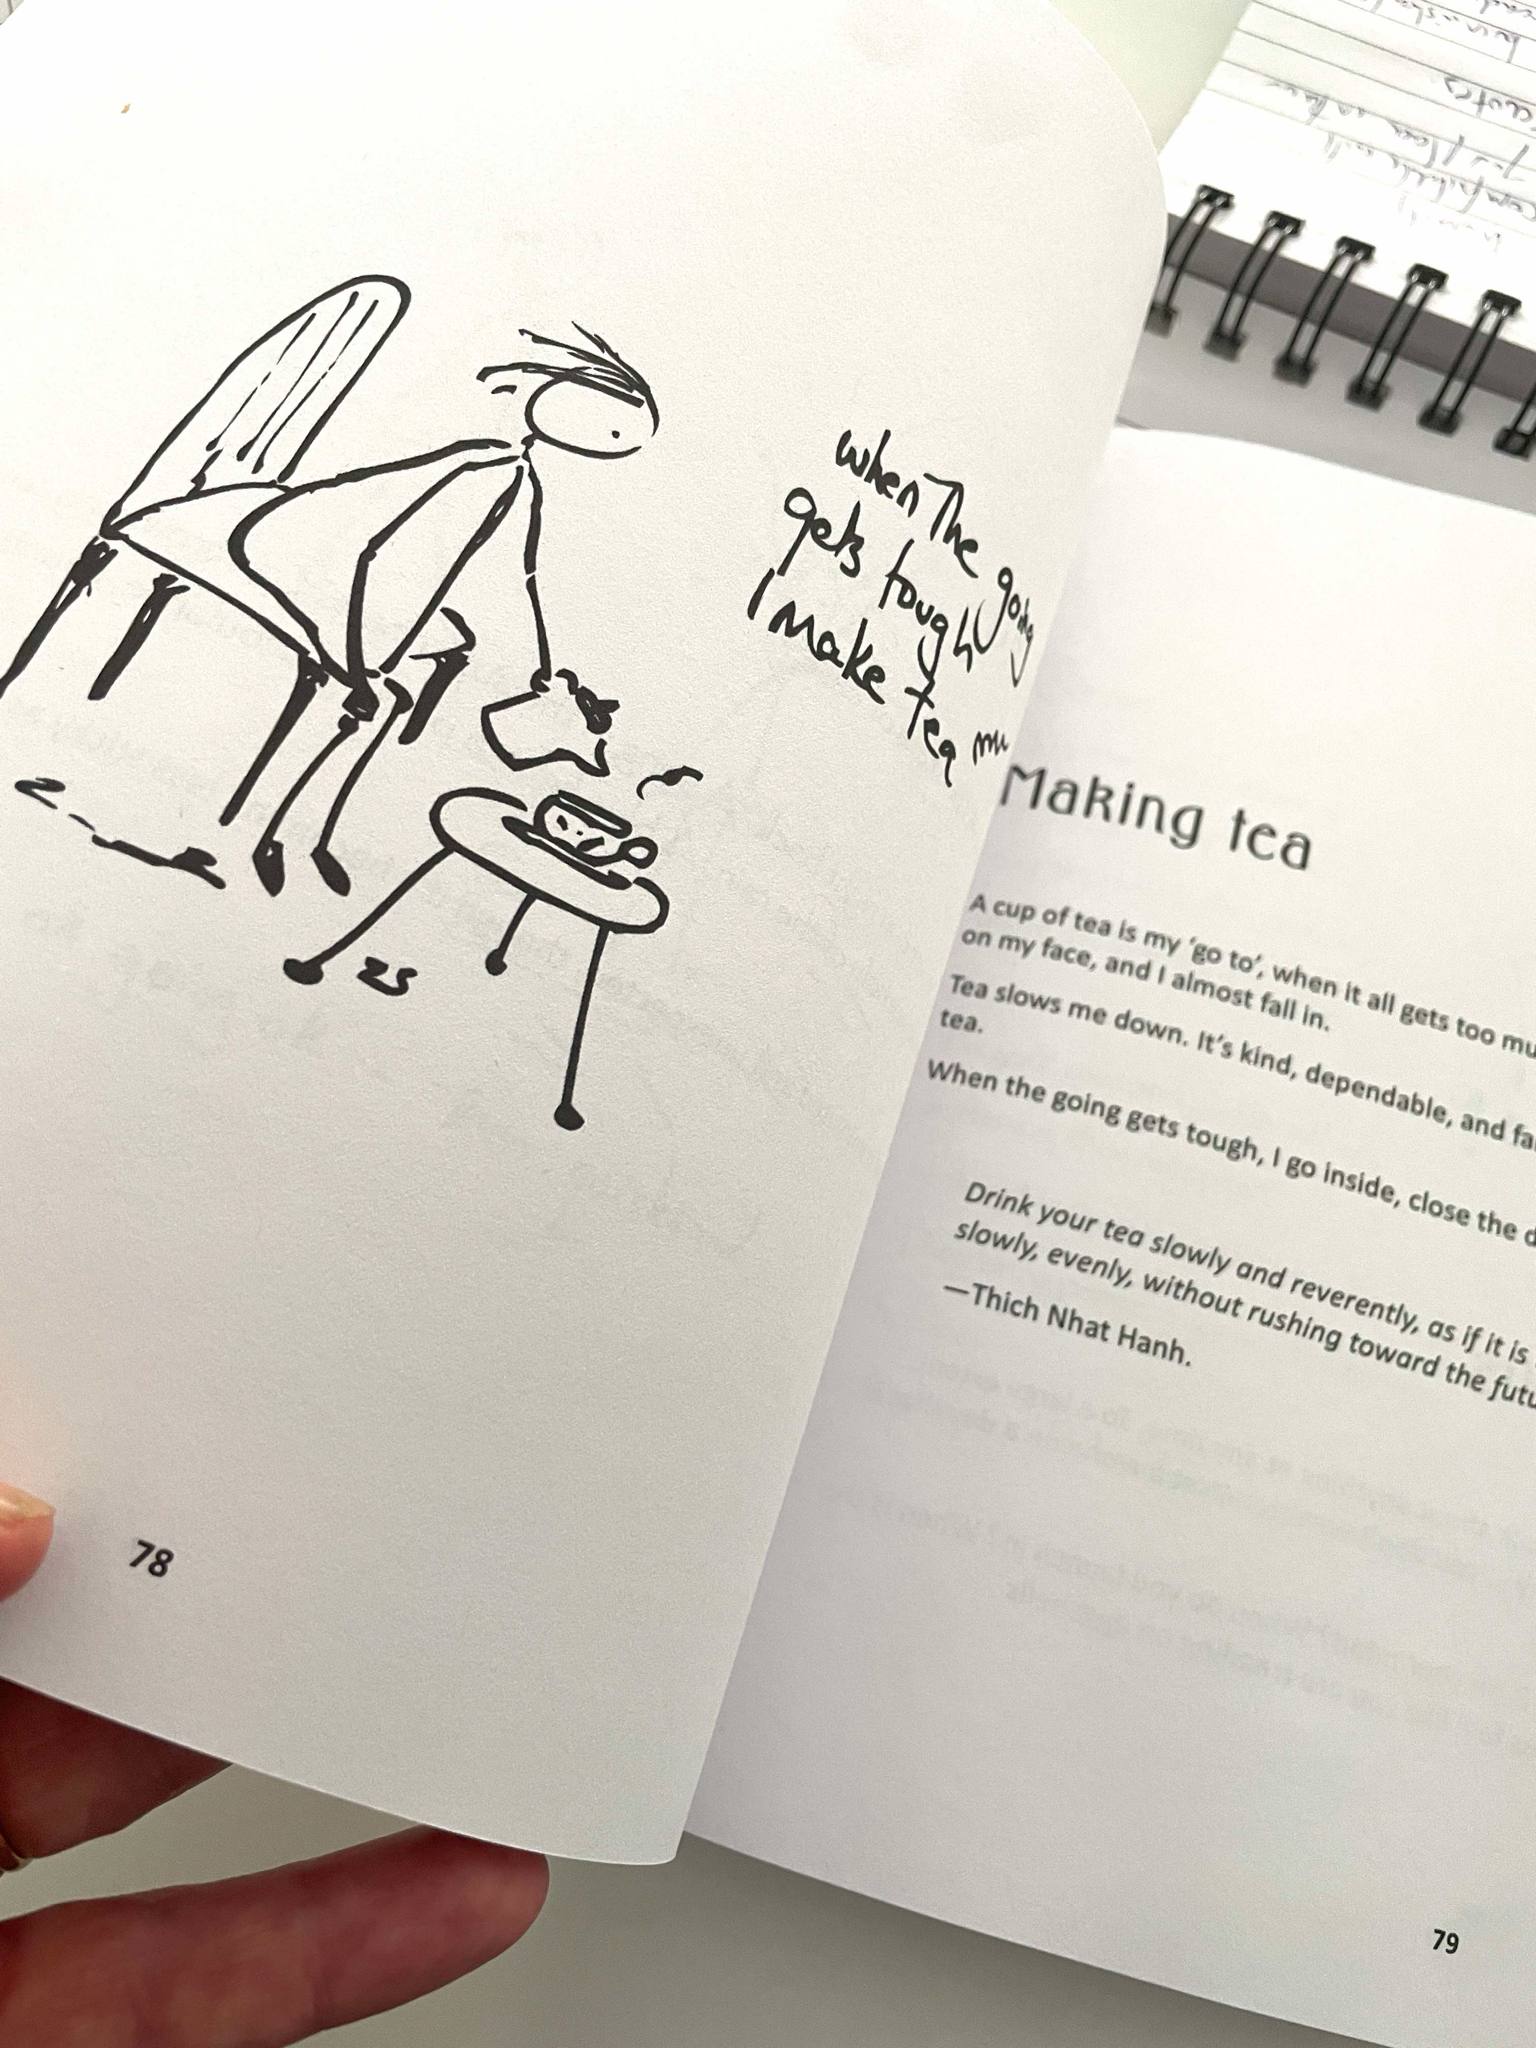 when The going
gets tough
I make tea
78
Making tea
A cup of tea is my 'go to', when it all gets too
on my face, and I almost fall in.
Tea slows me down. It's kind, dependable, and
tea.
When the going gets tough, I go inside, close the
Drink your tea slowly and reverently, as if it is
slowly, evenly, without rushing toward the
—Thich Nhat Hanh.
79